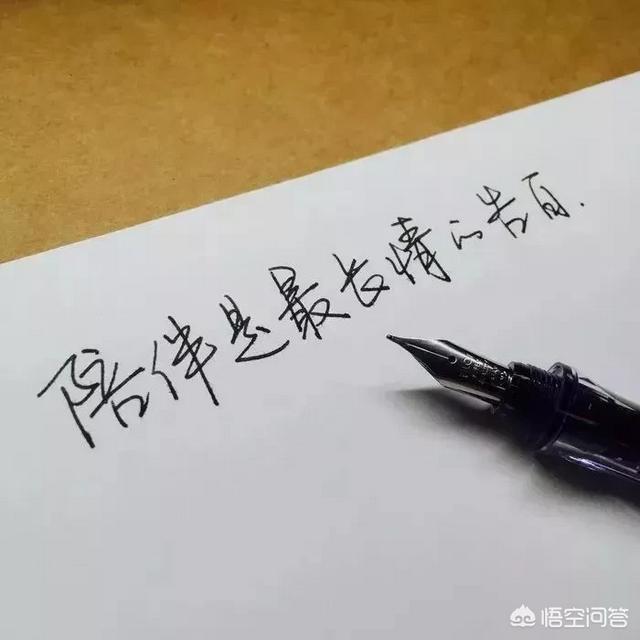 陪伴是最长情的告白.
悟空问答